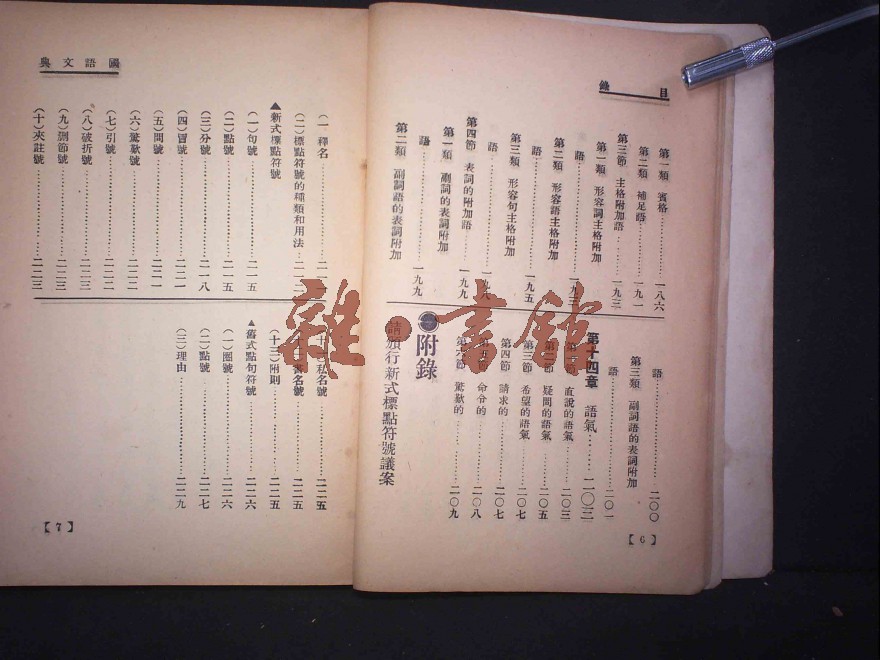 目錄
第一類 賓格…………一八六
第二類 補足語…………一九一
第三節 主格附加語…………一九三
第一類 形容詞主格附加
語…………一九三
第二類 形容語主格附加
語…………一九五
第三類 形容句主格附加
語…………一九八
第四節 表詞的附加語…………一九九
第一類 副詞的表詞附加
語…………一九九
第二類 副詞語的表詞附加
語…………二〇〇
第三類 副詞語的表詞附加
語…………二〇一
第十四章 語氣…………二〇三
直說的語氣…………二〇三
疑問的語氣…………二〇五
第三節 希望的語氣…………二〇七
第四節 請求的…………二〇七
命令的…………二〇八
第六節 驚歎的…………二〇九
附錄
請頒行新式標點符號議案
【6】
國語文典
(一)釋名…………二一
(二)標點符號的種類和用法…二一
▲新式標點符號
(一)句號…………二一五
(二)點號…………二一五
(三)分號…………二一八
(四)冒號…………二二一
(五)問號…………二二一
(六)驚歎號…………二二二
(七)引號…………二二二
(八)破折號…………二二三
(九)刪節號…………二二三
(十)夾註號…………二二三
私名號…………二二五
書名號…………二二五
(十三)附則…………二二五
▲舊式點句符號…………二二六
(一)圈號…………二二六
(二)點號…………二二七
(三)理由…………二二九
【7】
雜·書館